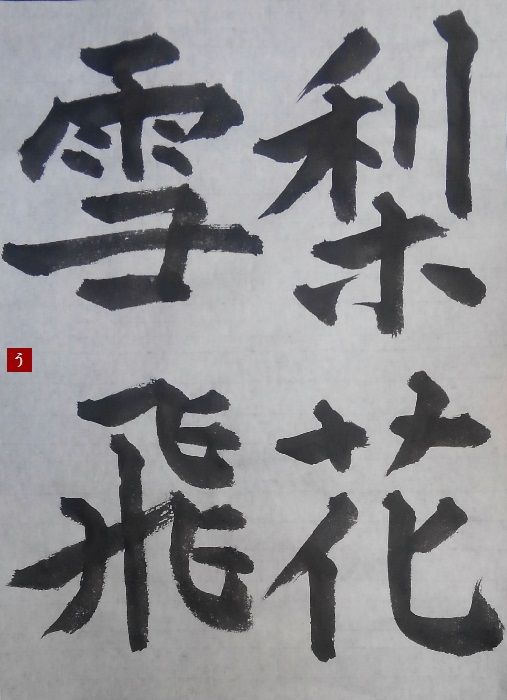 梨花
雪飛
う